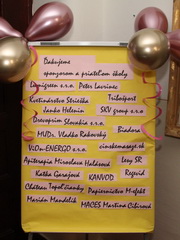 Ďakujeme
sponzorom a priateľom školy
Lumigreen s.r.o. Peter Lavrinec
Kvetinárstvo Stríežka Tribošport
Janko Helenin SKV group s.r.o
Drevoprim Slovakia s.r.o.
MVDr. Vladko Rakovský Biadora
V.O.-ENERGO s.r.o. cinskemasage.sk
Apiterapia Miroslava Halásová Levy SR
Katka Garajová KANVOD Regevid
Château Topoľčianky Papiernictvo M-efekt
Marián Mandelík MACES Martina Cibirová